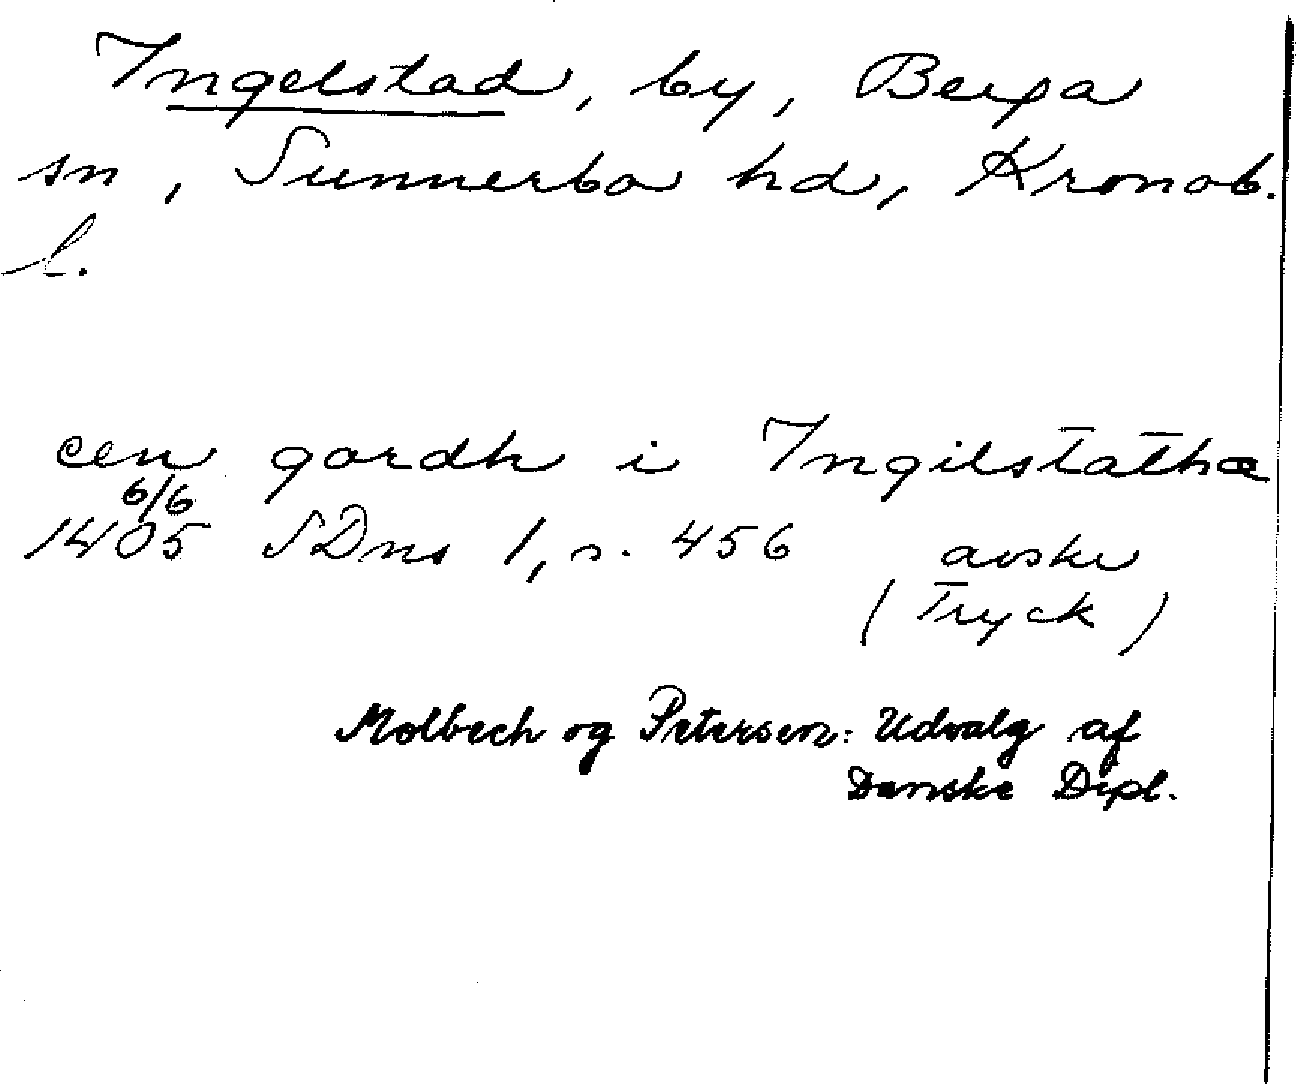 Ingelstad, by, Berga
sn, Sunnerbo hd, Kronob.
l.
een gardh i Ingilstathæ
6/6
1405 SDns 1, s. 456 avskr
(Tryck)
Molbech og Petersen: Udvalg af
Danske Dipl.